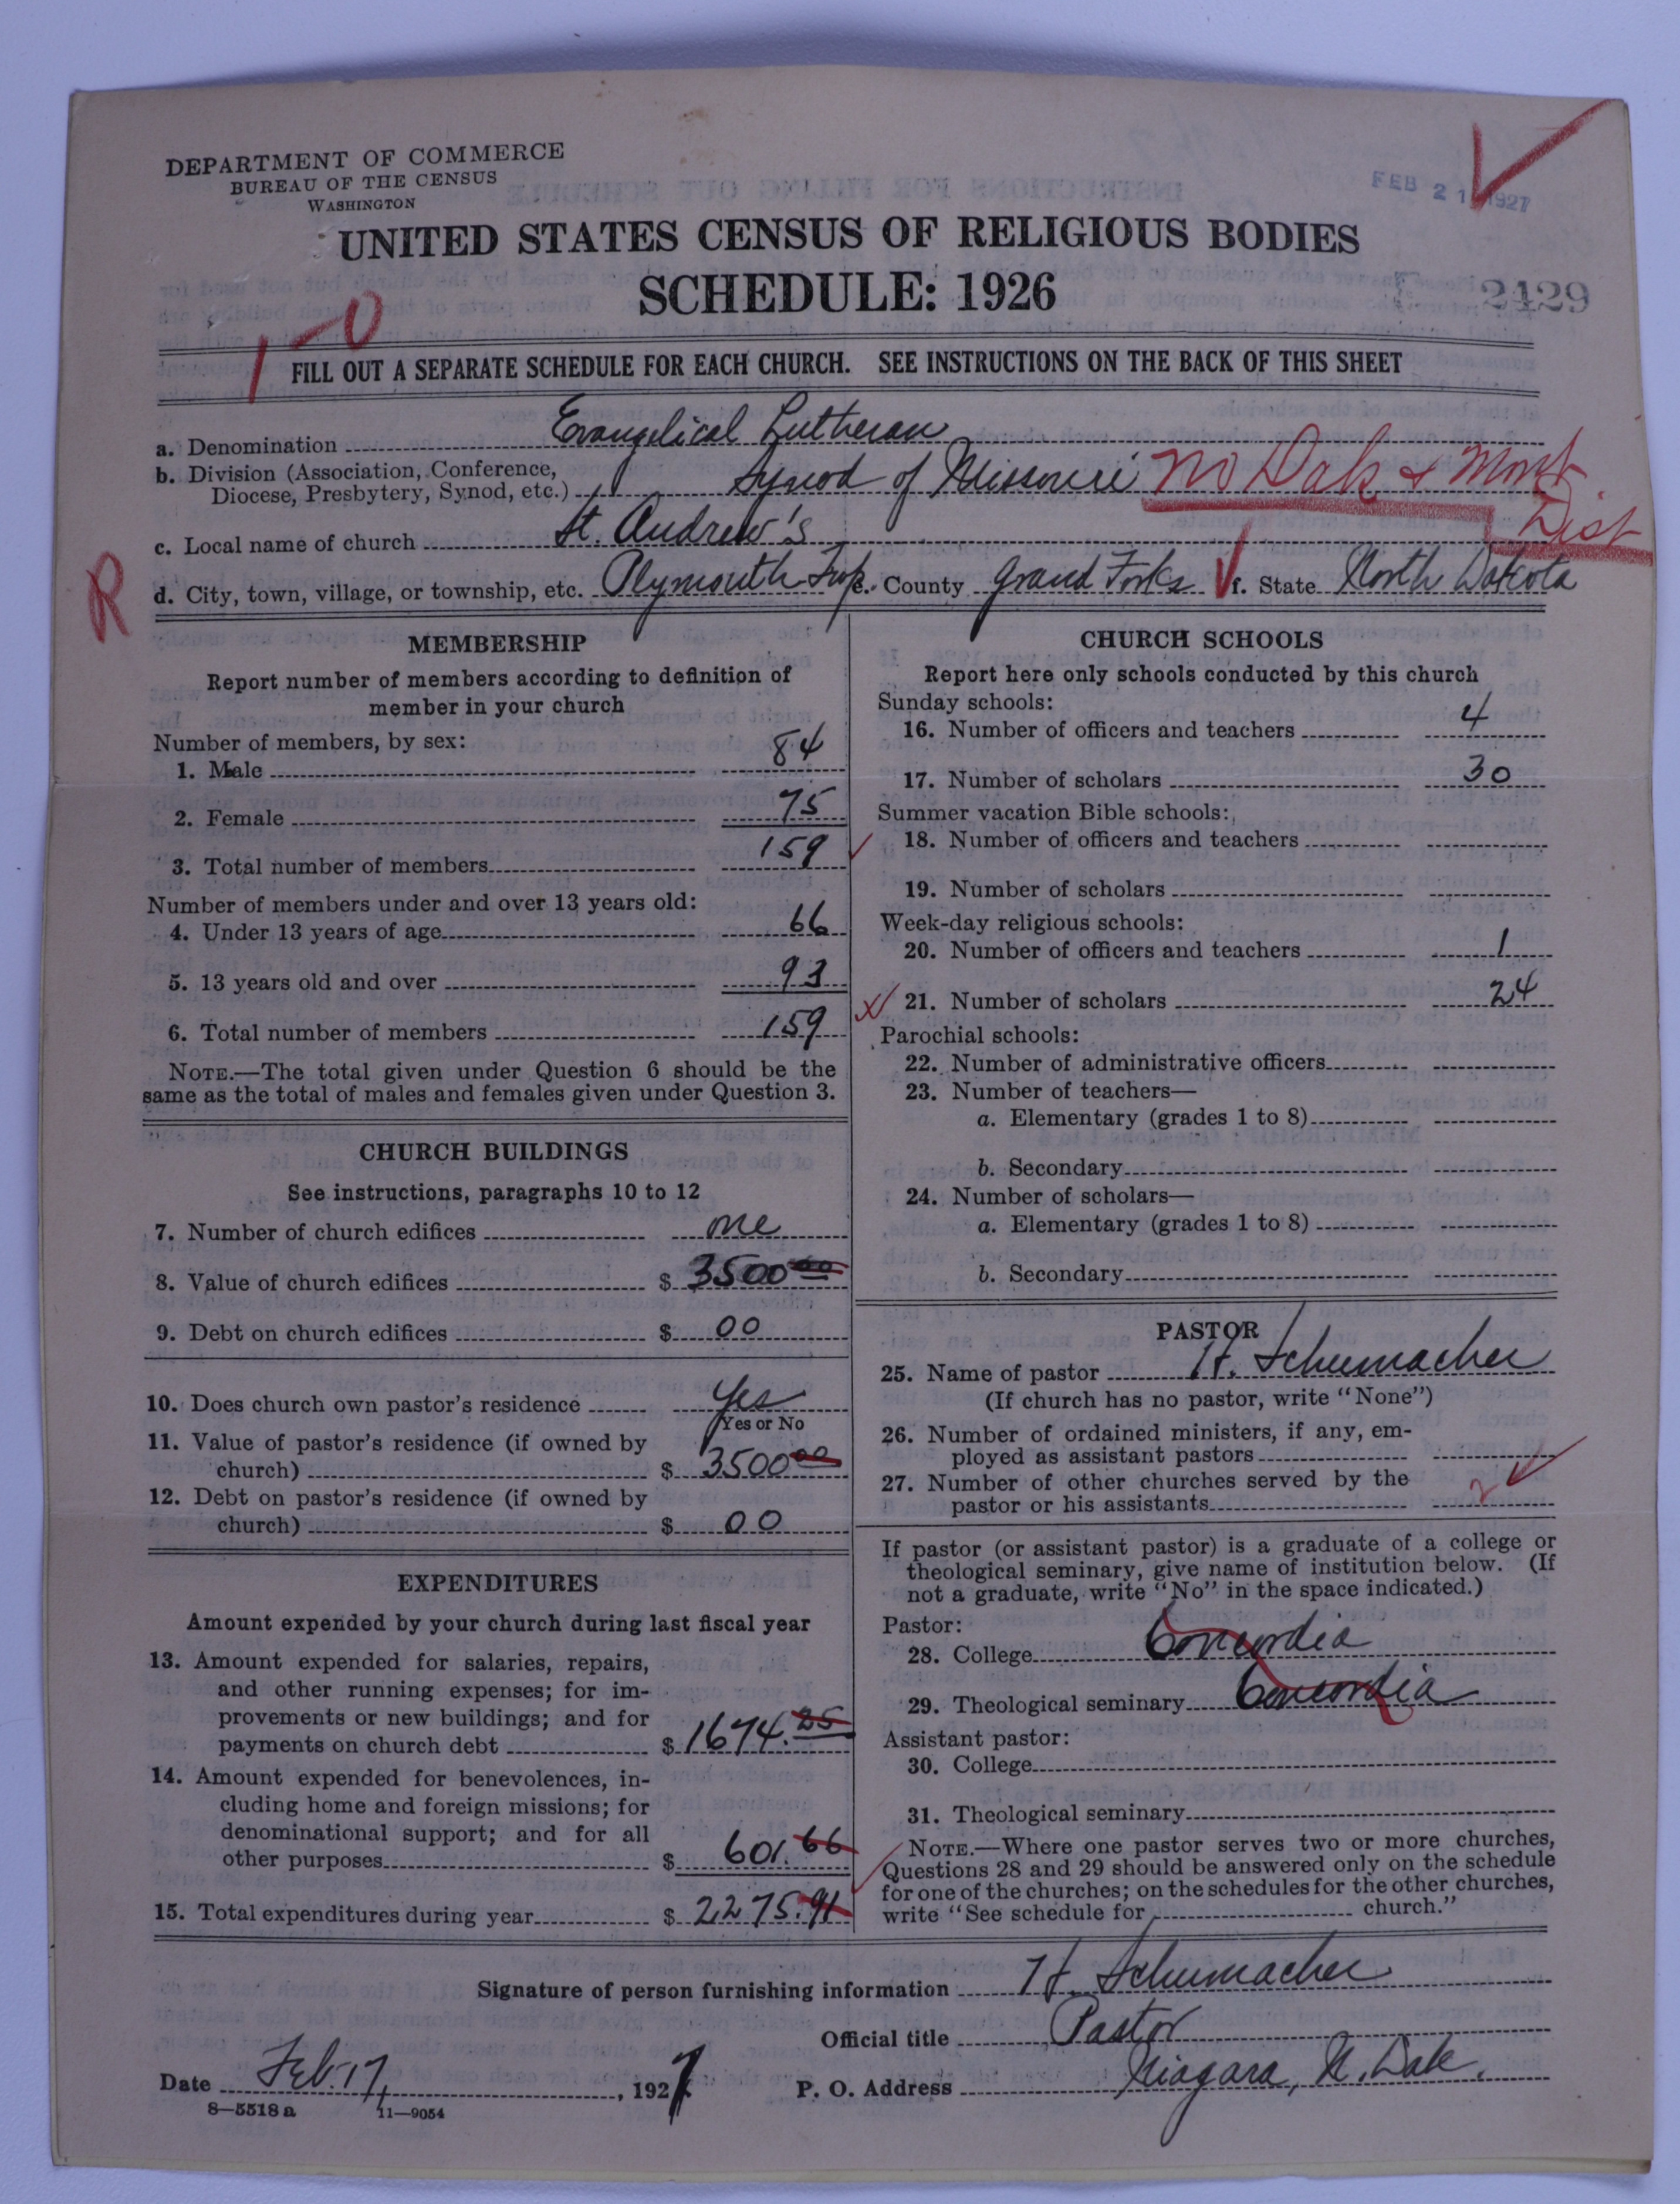 DEPARTMENT OF COMMERCE
BUREAU OF THE CENSUS
WASHINGTON
FEB 21 1927
UNITED STATES CENSUS OF RELIGIOUS BODIES
SCHEDULE: 1926
2429
1-0
FILL OUT A SEPARATE SCHEDULE FOR EACH CHURCH. SEE INSTRUCTIONS ON THE BACK OF THIS SHEET
a. Denomination Evangelical Lutheran
b. Division (Association, Conference,
Diocese, Presbytery, Synod, etc.) Synod of Missouri No Dak & Mont Dist
c. Local name of church St. Andrew's
R
d. City, town, village, or township, etc. Plymouth Twp. e. County Grand Forks f. State North Dakota
MEMBERSHIP
Report number of members according to definition of
member in your church
Number of members, by sex:
1. Male 84
2. Female 75
3. Total number of members 159
Number of members under and over 13 years old:
4. Under 13 years of age 66
5. 13 years old and over 93
6. Total number of members 159
NOTE.—The total given under Question 6 should be the
same as the total of males and females given under Question 3.
CHURCH BUILDINGS
See instructions, paragraphs 10 to 12
7. Number of church edifices one
8. Value of church edifices $ 3500 00
9. Debt on church edifices $ 00
10. Does church own pastor's residence Yes
Yes or No
11. Value of pastor's residence (if owned by
church) $ 3500 00
12. Debt on pastor's residence (if owned by
church) $ 00
EXPENDITURES
Amount expended by your church during last fiscal year
13. Amount expended for salaries, repairs,
and other running expenses; for im-
provements or new buildings; and for
payments on church debt $ 1674.25
14. Amount expended for benevolences, in-
cluding home and foreign missions; for
denominational support; and for all
other purposes $ 601.66
15. Total expenditures during year $ 2275.91
CHURCH SCHOOLS
Report here only schools conducted by this church
Sunday schools:
16. Number of officers and teachers 4
17. Number of scholars 30
Summer vacation Bible schools:
18. Number of officers and teachers
19. Number of scholars
Week-day religious schools:
20. Number of officers and teachers 1
21. Number of scholars 24
Parochial schools:
22. Number of administrative officers
23. Number of teachers—
a. Elementary (grades 1 to 8)
b. Secondary
24. Number of scholars—
a. Elementary (grades 1 to 8)
b. Secondary
PASTOR
25. Name of pastor H. Schumacher
(If church has no pastor, write "None")
26. Number of ordained ministers, if any, em-
ployed as assistant pastors
27. Number of other churches served by the
pastor or his assistants 2
If pastor (or assistant pastor) is a graduate of a college or
theological seminary, give name of institution below. (If
not a graduate, write "No" in the space indicated.)
Pastor:
28. College Concordia
29. Theological seminary Concordia
Assistant pastor:
30. College
31. Theological seminary
NOTE.—Where one pastor serves two or more churches,
Questions 28 and 29 should be answered only on the schedule
for one of the churches; on the schedules for the other churches,
write "See schedule for church."
Signature of person furnishing information H. Schumacher
Official title Pastor
Date Feb. 17, 1927
P. O. Address Niagara, N. Dak.
8—5518 a 11—9054